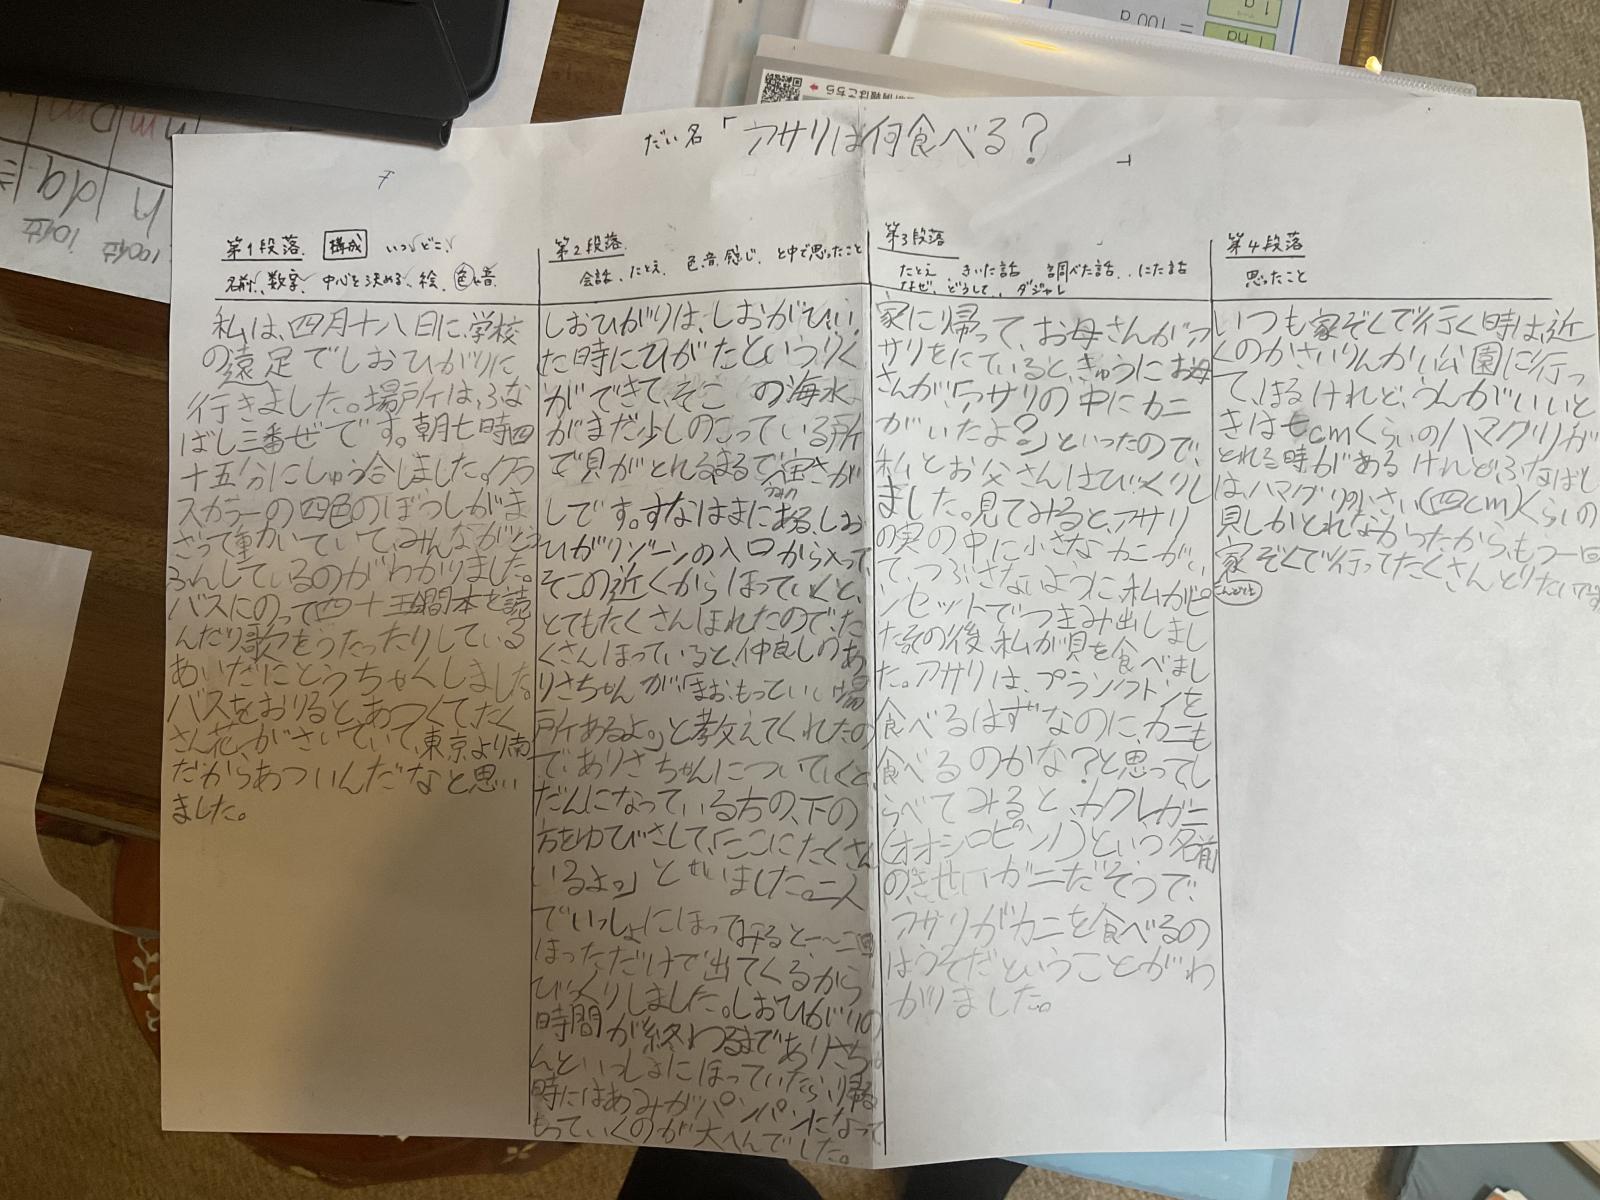 だい名「アサリは何食べる?」
第1段落 構成 いつ、どこ、
名前、数字、中心を決める、絵、色や音
私は、四月十八日に、学校
の遠足でしおひがりに
行きました。場所は、ふな
ばし三番ぜです。朝七時四
十五分にしゅう合しました。クラ
スカラーの四色のぼうしがま
ざって動いていて、みんながこう
ふんしているのがわかりました。
バスにのって四十五分間本を読
んだり歌をうたったりしている
あいだにとうちゃくしました。
バスをおりると、あつくて、たく
さん花、がさいていて、東京より南
だからあついんだなと思い
ました。
第2段落
会話、たとえ 色、音、感じ、と中で思ったこと
しおひがりは、しおがひい
た時にひがたというりく
ができて、そこの海水
がまだ少しのこっている所
で貝がとれる、まるで宝さが
しです。すなはまにある、しお
ひがりゾーンの入口から入って、
そこの近くからほっていくと、
とてもたくさんほれたので、た
くさんほっていると、仲良しのあ
りさちゃんが、「まお、もっていい場
所あるよ。」と教えてくれたの
で、ありさちゃんについていくと、
だんになっている方の、下の
方をゆびさして、「ここにたくさん
いるよ。」といいました。二人
でいっしょにほってみると、一〜二回
ほっただけで出てくるから
びっくりしました。しおひがりの
時間が終わるまでありさちゃ
んといっしょにほっていたら、帰る
時にはあみがパンパンになって、
もっていくのが大へんでした。
第3段落
たとえ きいた話 調べた話、にた話
なぜ、どうして、ダジャレ
家に帰って、お母さんがア
サリをにていると、きゅうにお母
さんが、「アサリの中にカニ
がいたよ?」といったので、
私とお父さんはびっくりし
ました。見てみると、アサリ
の実の中に小さなカニがい
て、つぶさないように、私がピ
ンセットでつまみ出しまし
た。その後、私が貝を食べまし
た。アサリは、プランクトンを
食べるはずなのに、カニも
食べるのかな?と思ってし
らべてみると、カクレガニ
(オオシロピンノ)という名前
のきせいガニだそうで、
アサリがカニを食べるの
はうそだということがわ
かりました。
第4段落
思ったこと
いつも家ぞくで行く時は、近
くのかさいりんかい公園に行っ
て、ほるけれど、うんがいいと
きは七cmくらいのハマグリが
とれる時があるけれど、ふなばし
は、ハマグリ小さい(四cm)くらいの
貝しかとれなかったから、もう一回
家ぞくで行ってたくさんとりたいです